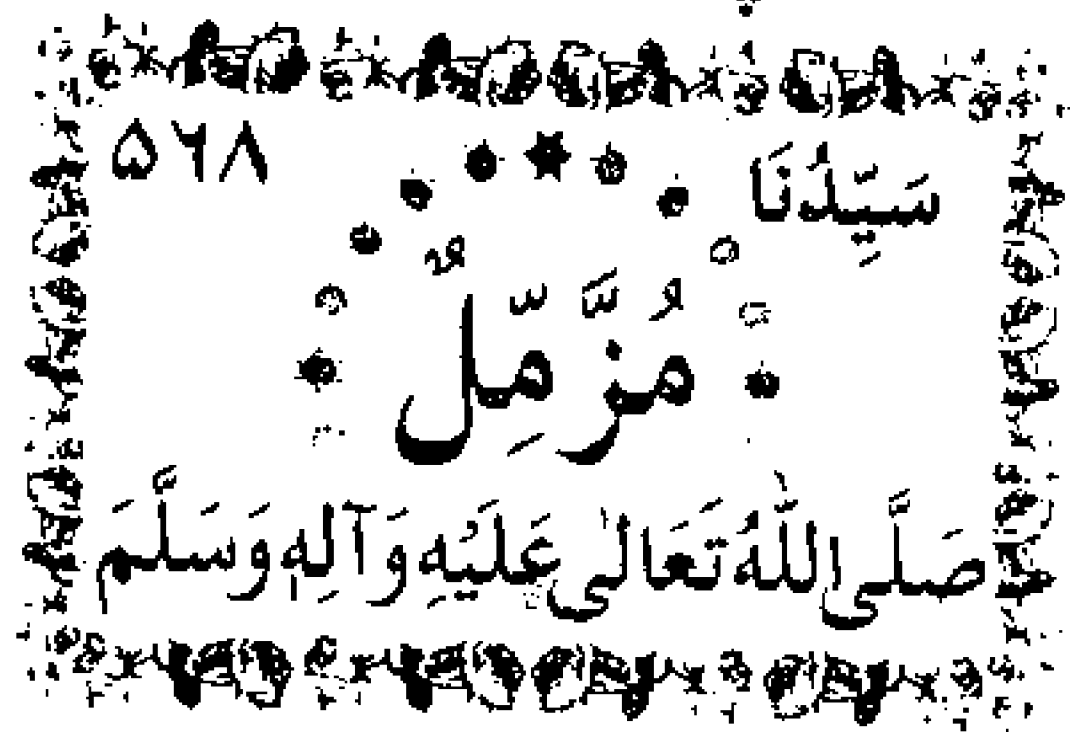 سَيِّدُنَا ۵۶۸
مُزَّمِّلٌ
صَلَّى اللّٰهُ تَعَالىٰ عَلَيْهِ وَآلِهٖ وَسَلَّمَ